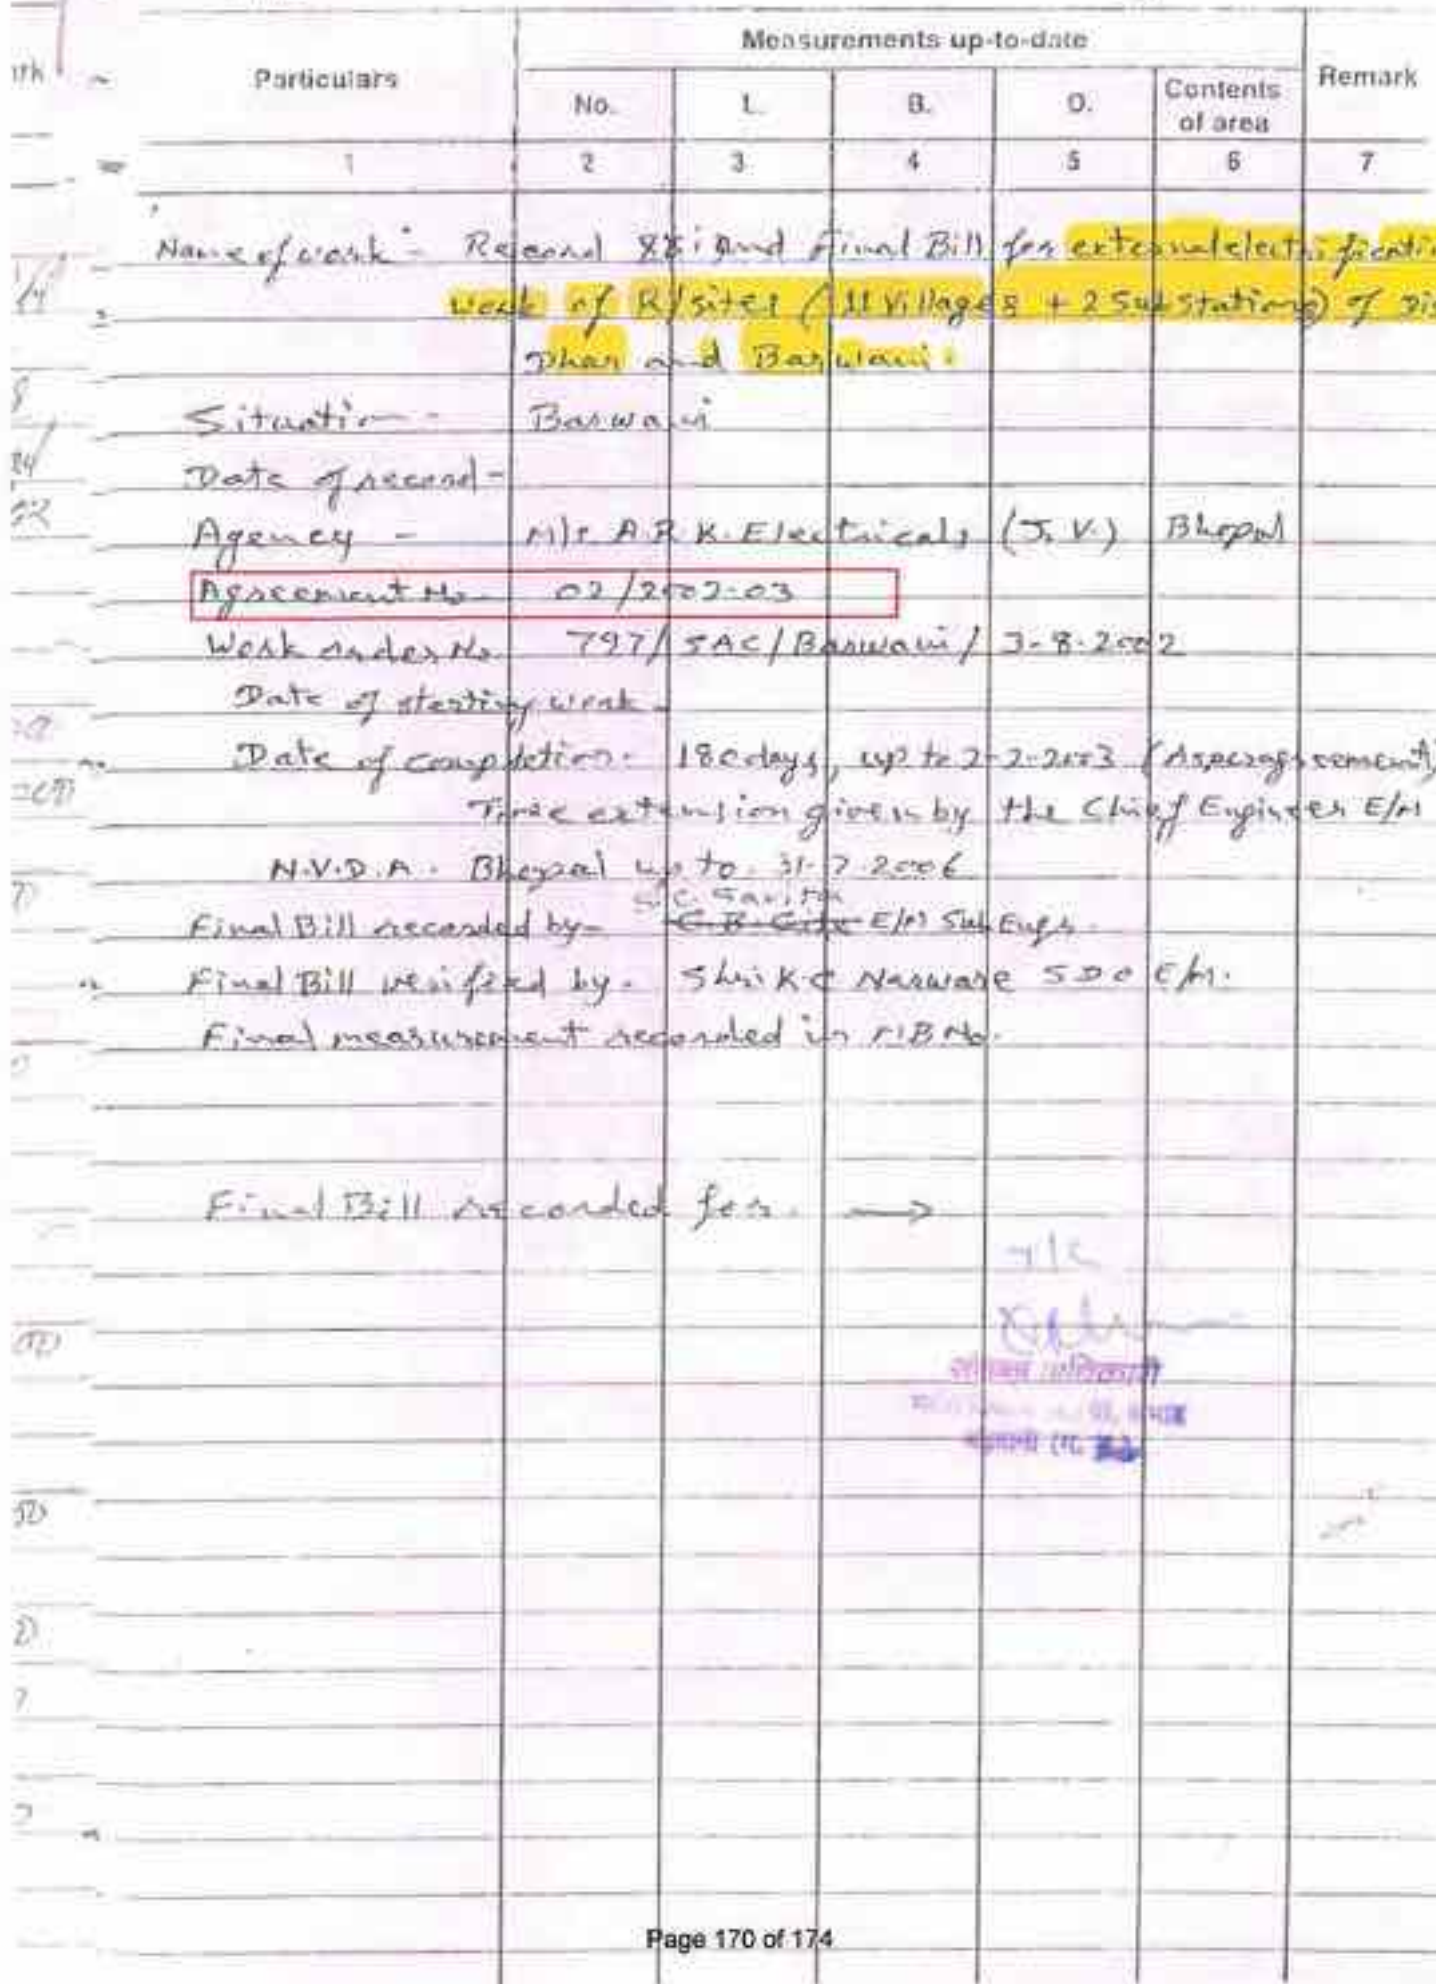 Measurements up-to-date
Particulars No. L. B. D. Contents of area Remark
1 2 3 4 5 6 7
Name of work - Record and Final Bill for external electrificatio
work of R/sites (11 Villages + 2 Substations) of Dis
Dhar and Barwani.
Situation - Barwani
Date of record -
Agency - M/s. A.R.K. Electricals (J.V.) Bhopal
Agreement No. 02/2002-03
Work order No. 797/SAC/Barwani/ 3-8-2002
Date of starting work -
Date of completion - 180 days, up to 2-2-2003 (As per agreement)
Time extension given by the Chief Engineer E/M
N.V.D.A. Bhopal up to 31-7-2006
S.C. Savita
Final Bill recorded by - E/M Sub Engr.
Final Bill verified by - Shri K.C Narware SDO E/M.
Final measurement recorded in MB No.
Final Bill recorded for. →
Page 170 of 174